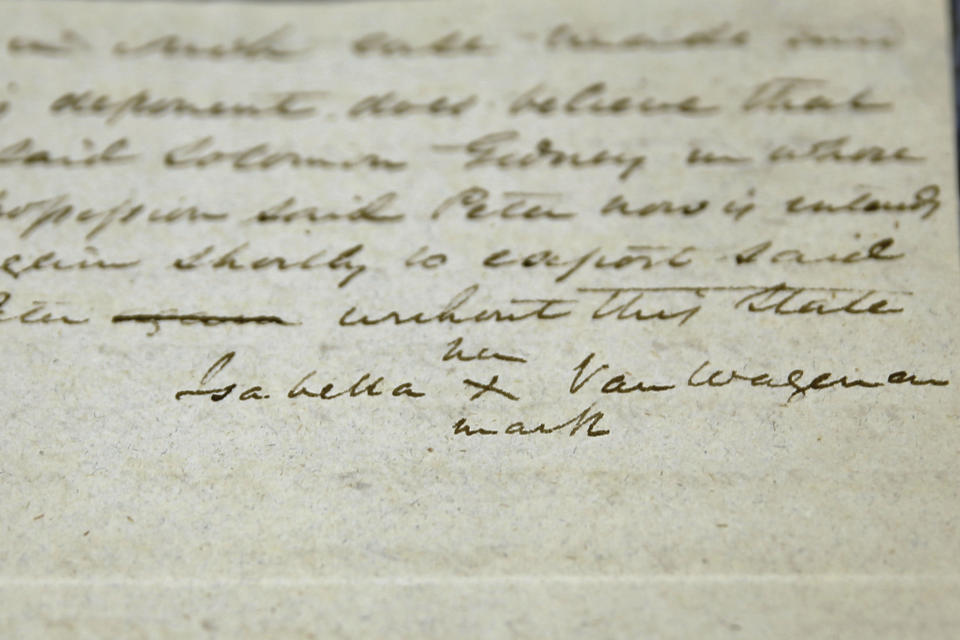 in such case made and
deponent does believe that
said Solomon Gedney in whose
possession said Peter now is intends
again shortly to export said
Peter again without this State
her
Isabella X Van Wagenen
mark